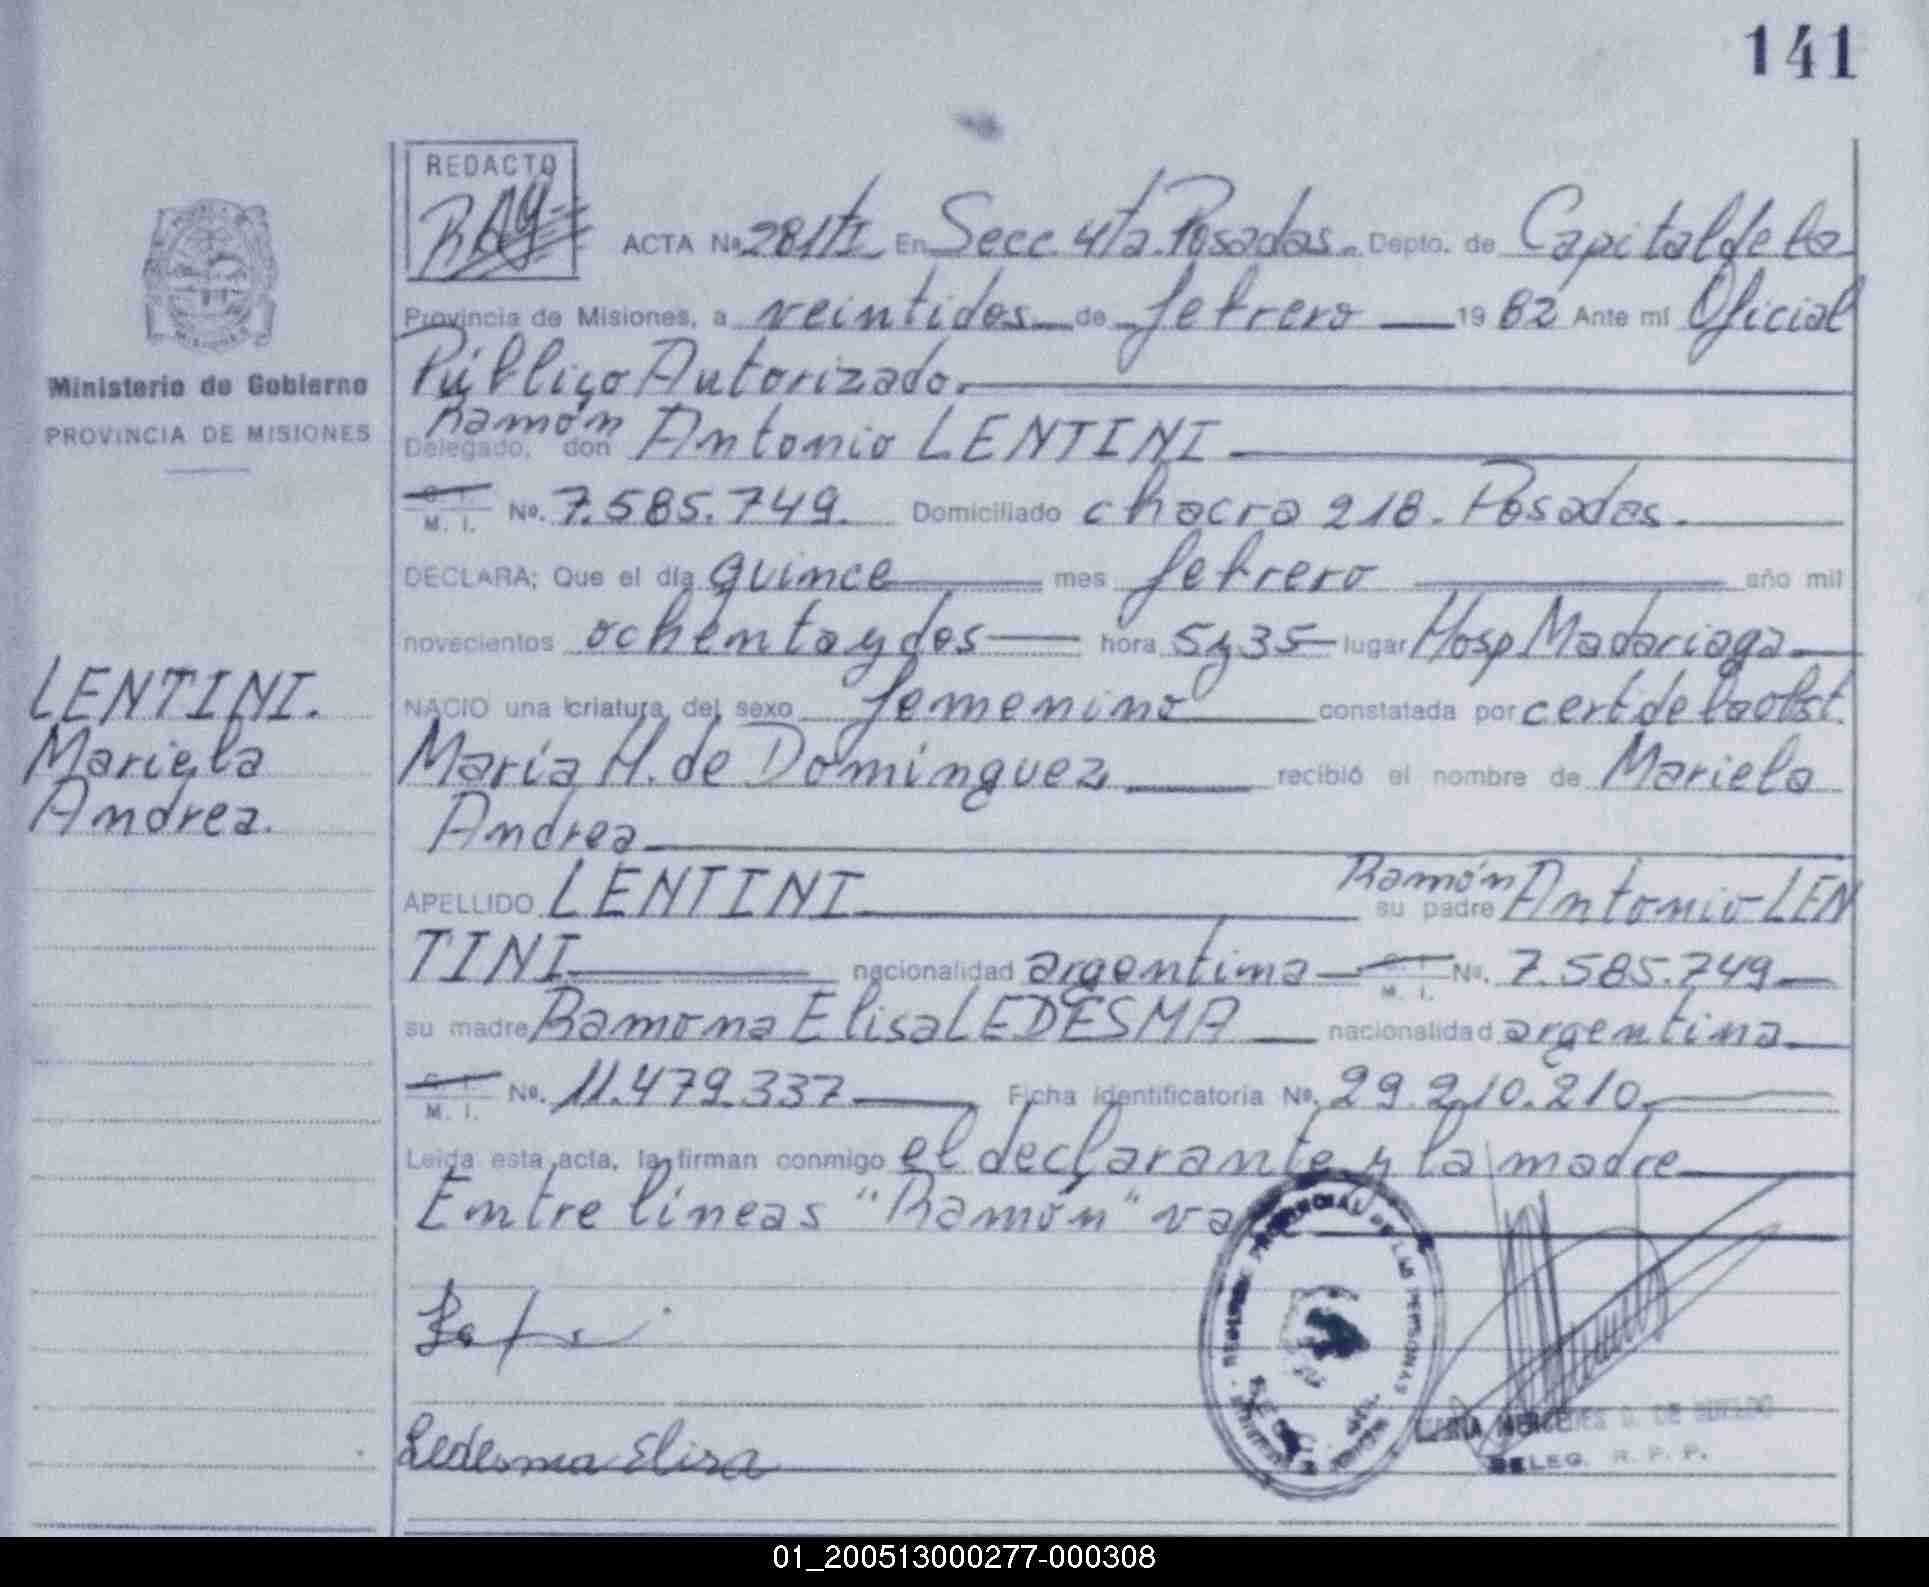 141
REDACTO
ACTA Nº 281 T I En Secc 4ta. Posadas. Depto. de Capital de la
Provincia de Misiones, a veintidos de febrero 1982 Ante mi Oficial
Público Autorizado.
Ministerio de Gobierno
PROVINCIA DE MISIONES
Ramón
Delegado, don Antonio LENTINI
C. I.
M. I. Nº. 7.585.749. Domiciliado chacra 218. Posadas.
DECLARA; Que el día quince mes febrero año mil
novecientos ochenta y dos hora 5 y 35 lugar Hosp Madariaga
LENTINI.
Mariela
Andrea.
NACIO una criatura del sexo femenino constatada por cert de la obst.
María H. de Domínguez, recibió el nombre de Mariela
Andrea
APELLIDO LENTINI Ramón
su padre Antonio LEN
TINI nacionalidad argentina C. I. Nº. 7.585.749
M. I.
su madre Ramona Elisa LEDESMA nacionalidad argentina
C. I.
M. I. Nº. 11.479.337 Ficha identificatoria Nº. 29.210.210
Leída esta acta, la firman conmigo el declarante y la madre
Entre líneas "Ramón" va
PROVINCIAL DE LAS PERSONAS
Ledesma Elisa
MARIA MERCEDES D. DE
DELEG. R. P. P.
01_200513000277-000308